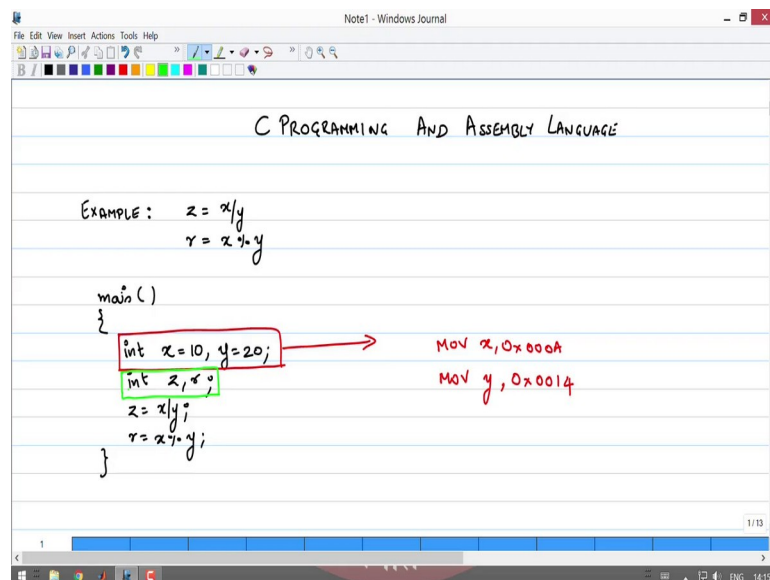 Note1 - Windows Journal
File Edit View Insert Actions Tools Help
C PROGRAMMING AND ASSEMBLY LANGUAGE
EXAMPLE: z = x/y
r = x % y
main()
{
int x=10, y=20; MOV x, 0x000A
int z, r; MOV y, 0x0014
z = x/y;
r = x % y;
}
1/13
1
ENG 14:15